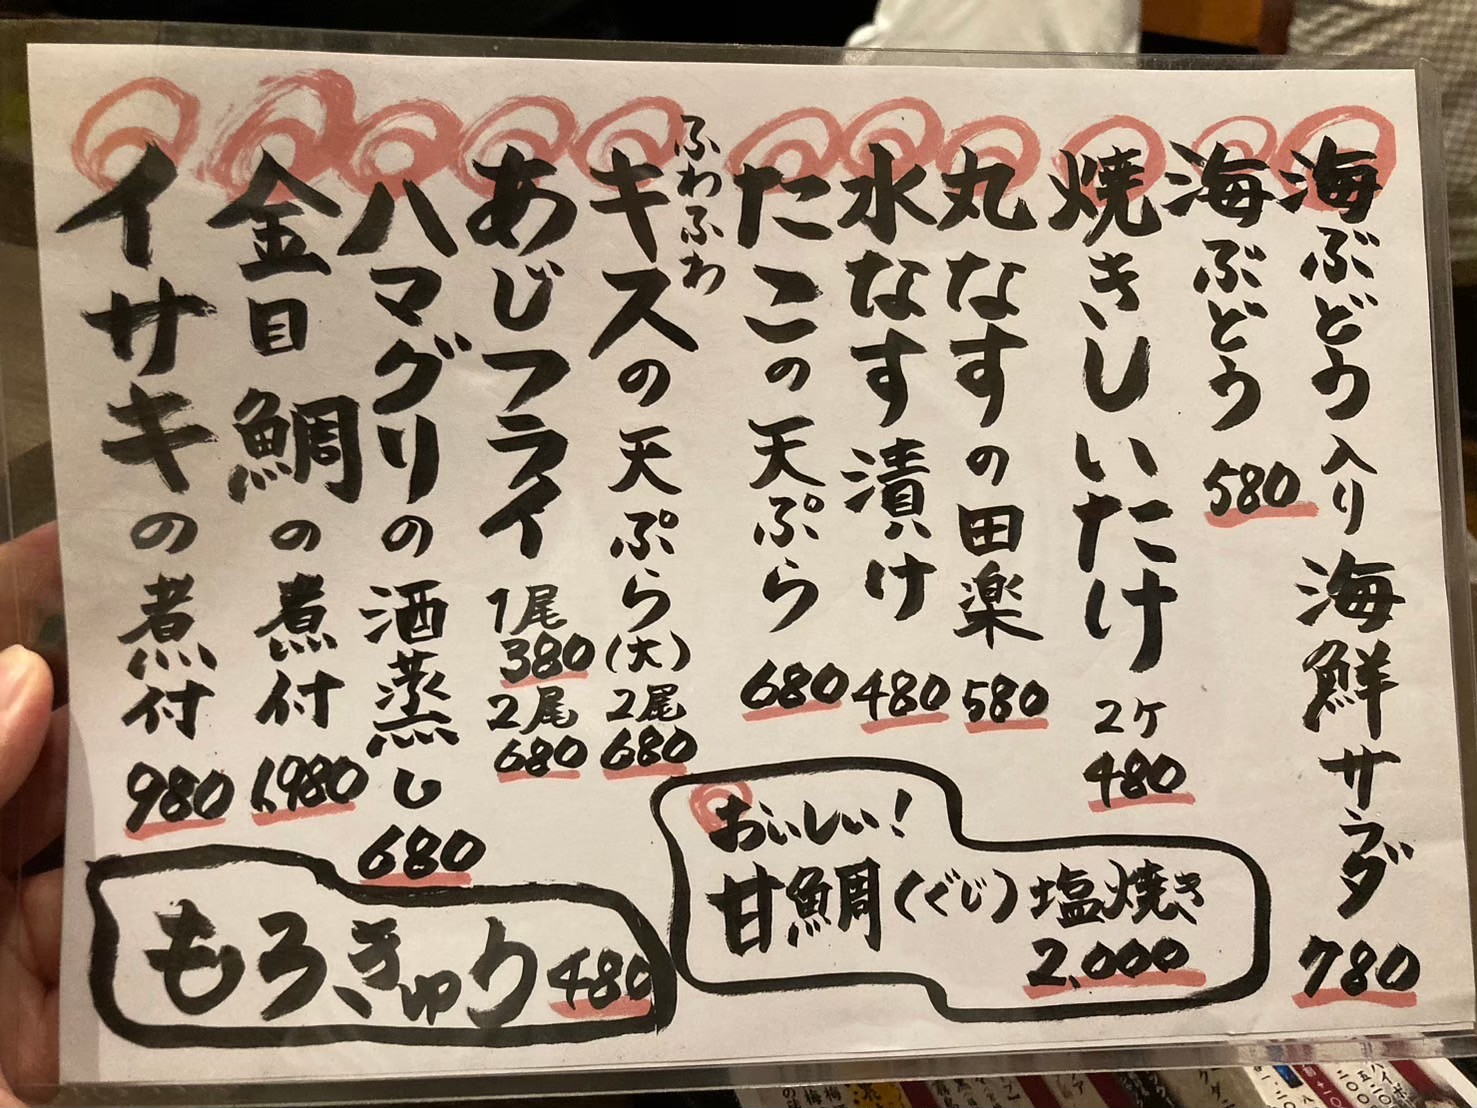 海ぶどう入り海鮮サラダ 780
海ぶどう 580
焼きしいたけ 2ケ 480
丸なすの田楽 580
水なす漬け 480
たこの天ぷら 680
ふわふわ
キスの天ぷら(大) 2尾 680
あじフライ 1尾 380 2尾 680
ハマグリの酒蒸し 680
金目鯛の煮付 1,980
イサキの煮付 980
おいしい!
甘鯛(ぐじ)塩焼き
2,000
もろきゅう 480